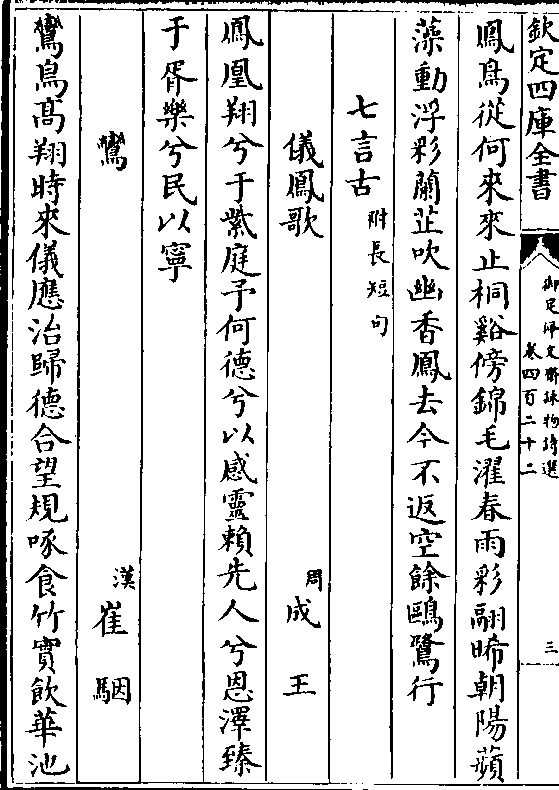 欽定四庫全書
御定佩文齋詠物詩選
卷四百二十二
三
鳳鳥從何來來止桐谿傍錦毛濯春雨彩翮晞朝陽蘋
藻動浮彩蘭芷吹幽香鳳去今不返空餘鷗鷺行
七言古附長短句
儀鳳歌 周成王
鳳凰翔兮于紫庭予何德兮以感靈賴先人兮恩澤臻
于胥樂兮民以寧
鸞 漢崔駰
鸞鳥高翔時來儀應治歸德合望規啄食竹實飲華池